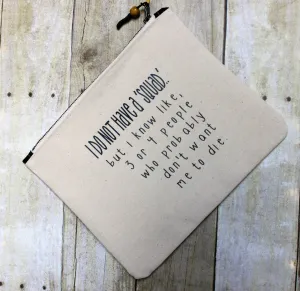 I DO NOT HAVE A "SQUAD."
but I know like,
3 or 4 people
who probably
don't want
me to die